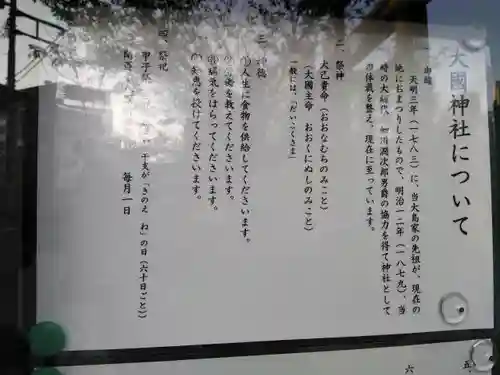 大國神社について
一、由緒
天明三年(一七八三)に、当大島家の先祖が、現在の
地におまつりしたもので、明治一二年(一八七九)、当
時の大総代 細川潤次郎男爵の協力を得て神社として
の体裁を整え、現在に至っています。
二、祭神
大己貴命(おおなむちのみこと)
(大國主命 おおくにぬしのみこと)
一般には、「だいこくさま」
三、神徳
①人生に食物を供給してくださいます。
②医術を教えてくださいます。
③病気をはらってくださいます。
④知恵を授けてくださいます。
四、祭祀
甲子祭 干支が「きのえ ね」の日(六十日ごと)
毎月一日
五
六